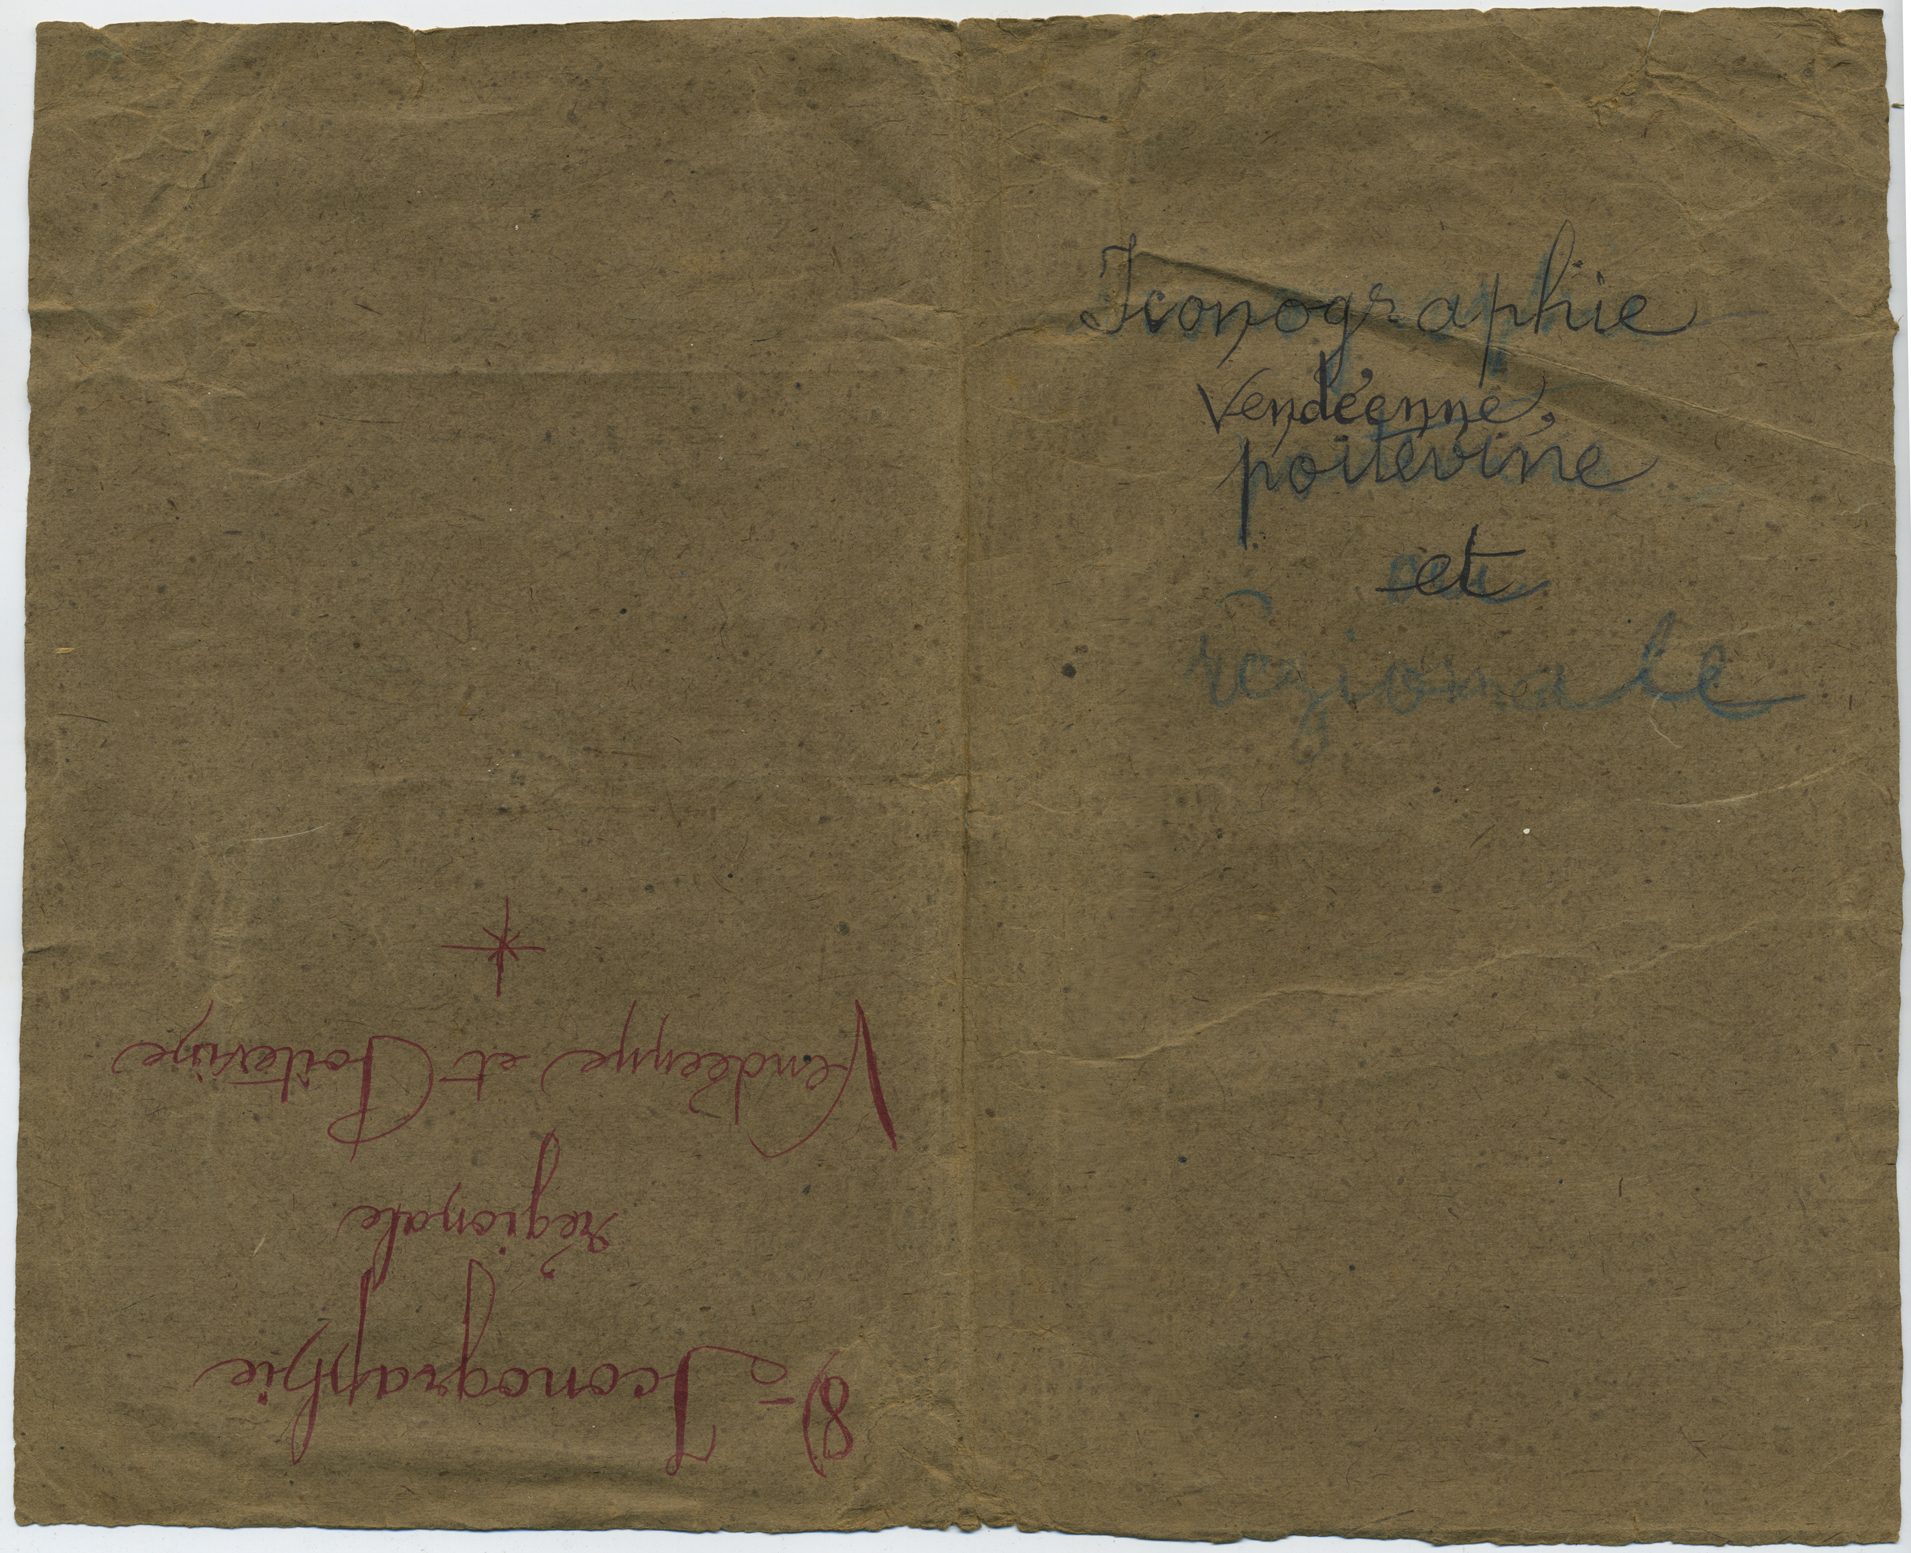 Iconographie
Vendéenne,
poitevine
et
régionale
8) - Iconographie
régionale
Vendéenne et Poitevine